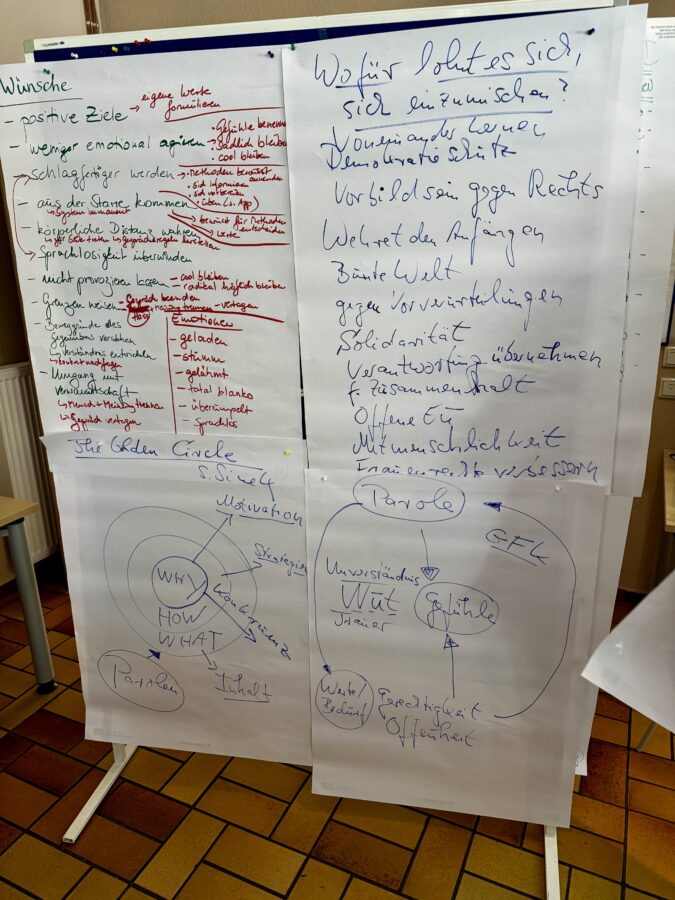 Wünsche
- positive Ziele
→ eigene Werte formulieren
- weniger emotional agieren
• Gefühle benennen
→ • sachlich bleiben
• cool bleiben
- schlagfertiger werden
→ • Methoden bewusst anwenden
• sich informieren
• sich vorbereiten
• üben (s. App)
- aus der Starre kommen
↳ System immanent
bewusst für Methoden entscheiden
- körperliche Distanz wahren
→ Werte
↳ zur Seite treten ↳ Gesprächsregeln herstellen
- Sprachlosigkeit überwinden
- nicht provozieren lassen
- cool bleiben
- radikal höflich bleiben
- Grenzen weisen
- Gespräch beenden
Meinung trennen
- vertagen
- Beweggründe des
Gegenübers verstehen
↳ Verständnis entwickeln
- Umgang mit
Verwandtschaft
↳ Mensch + Meinung trennen
↳ Gespräch vertagen
Emotionen
- geladen
- stumm
- gelähmt
- total blanko
- überrumpelt
- sprachlos
Wofür lohnt es sich,
sich einzumischen?
Voneinander lernen
Demokratieschutz
Vorbild sein gegen Rechts
Wehret den Anfängen
Bunte Welt
gegen Vorverurteilungen
Solidarität
Verantwortung übernehmen
f. Zusammenhalt
Offene EU
Mitmenschlichkeit
Frauenrechte verbessern
The Golden Circle
S. Sinek
Motivation
Strategien
WHY
Konsequenz
HOW
WHAT
Parolen
Inhalt
Parole
GFK
Unverständnis
Wut
Trauer
Gefühle
Werte/
Bedürf.
Gerechtigkeit
Offenheit